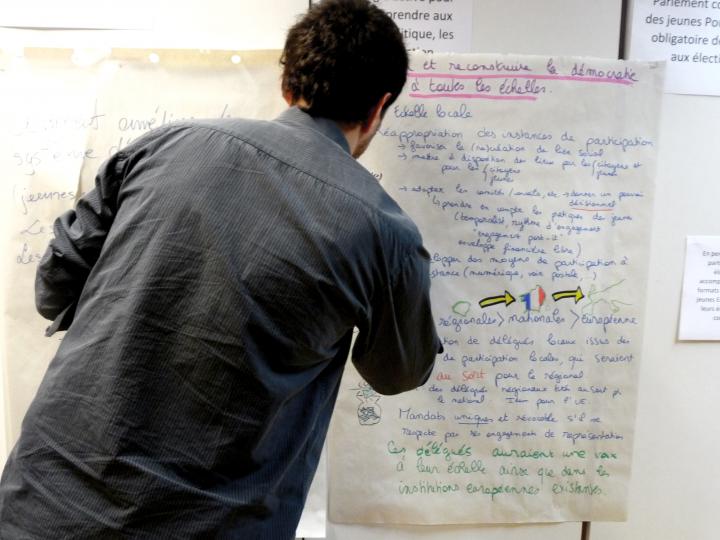 prendre aux
itique, les
Parlement co
des jeunes Po
obligatoire de
aux électi
et reconstruire la démocratie
à toutes les échelles.
Echelle locale
Réappropriation des instances de participation
→ favoriser la (re)création de lien social
→ mettre à disposition des lieux par les citoyens et jeunes
pour les citoyens jeunes
→ adapter les comités locale, etc → donner un pouvoir
décisionnel
prendre en compte les pratiques des jeunes
(temporalité, rythme d'engagement
"engagement post-it"
enveloppe financière libre)
lopper des moyens de participation à
istance (numérique, voie postale, ..)
régionales > nationales > européenne
tion de délégués locaux issus des
de participation locales, qui seraient
au sort pour le régional
des délégués régionaux au sort pr
le national Idem pour l'UE.
Mandats uniques et révocable s'il ne
respecte pas ses engagements de représentation
Ces délégués auraient une voix
à leur échelle ainsi que dans les
institutions européennes existantes.
améliorer
système
(jeunes
Les
Les
En pe
part
accomp
formats
jeunes E
leurs e